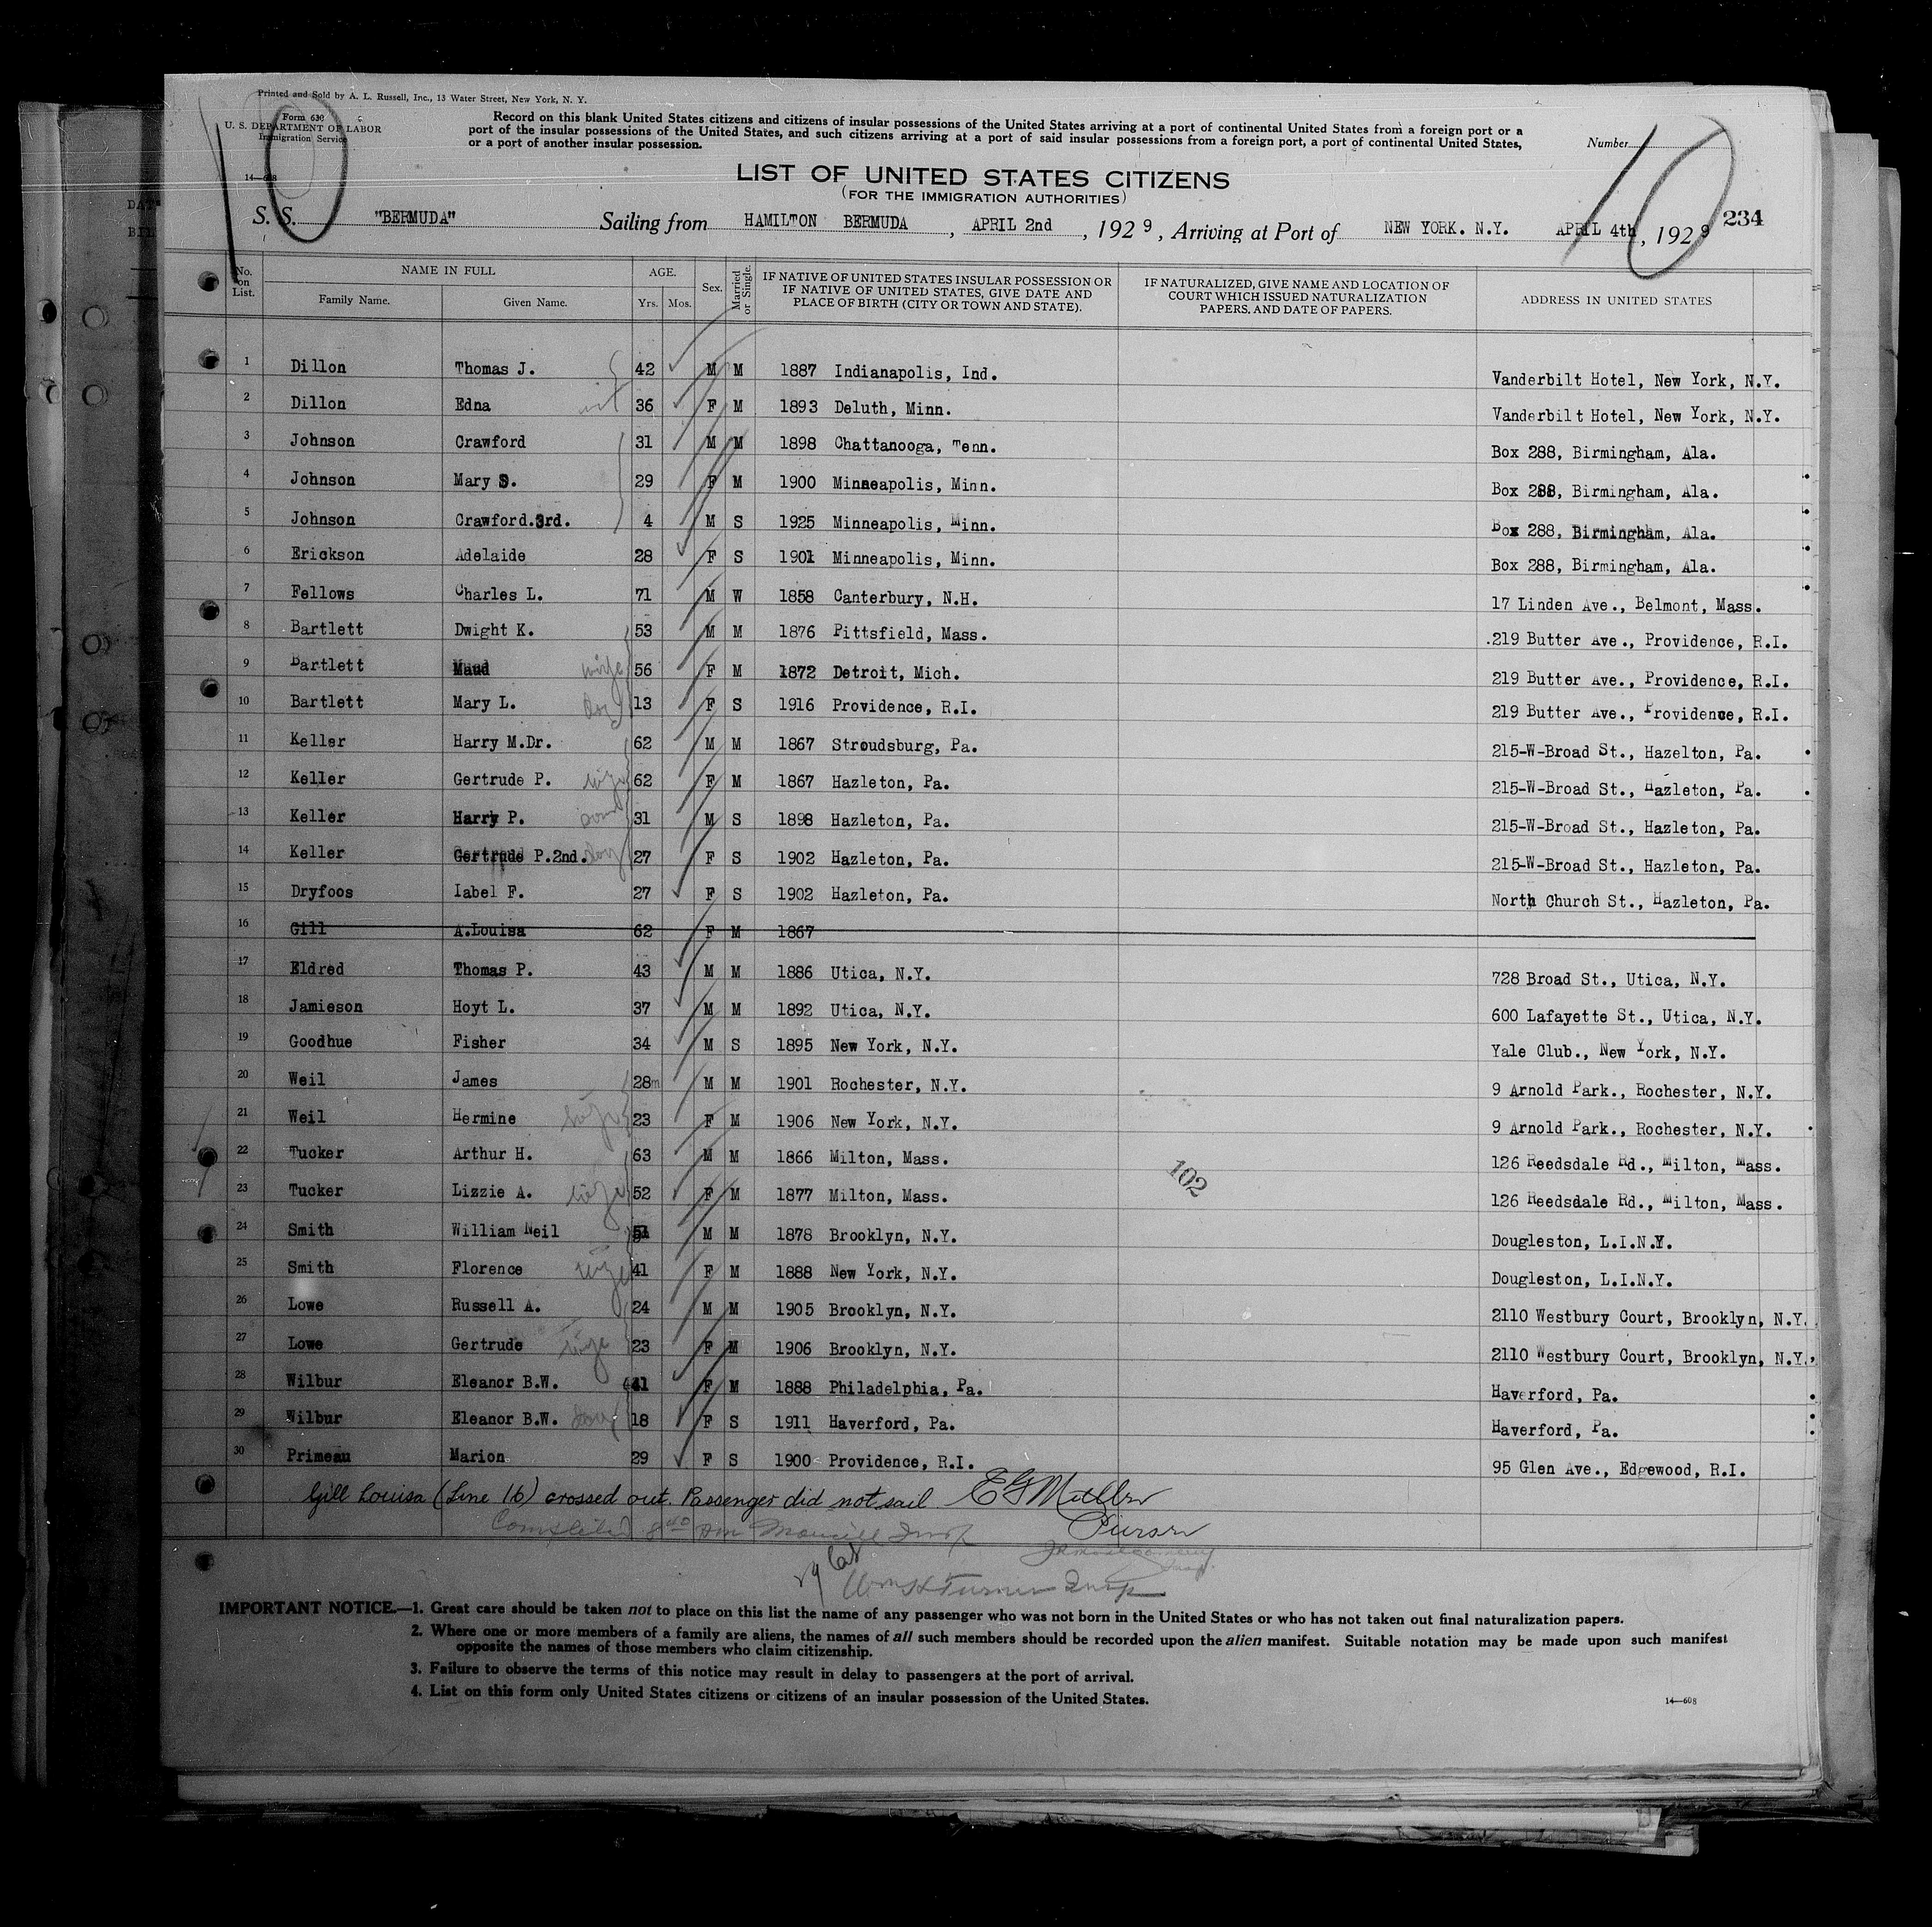 Printed and Sold by A. L. Russell, Inc., 13 Water Street, New York, N. Y.
Form 630
U. S. DEPARTMENT OF LABOR
Immigration Service
14—608
10
Record on this blank United States citizens and citizens of insular possessions of the United States arriving at a port of continental United States from a foreign port or a
port of the insular possessions of the United States, and such citizens arriving at a port of said insular possessions from a foreign port, a port of continental United States,
or a port of another insular possession.
Number
10
234
LIST OF UNITED STATES CITIZENS
(FOR THE IMMIGRATION AUTHORITIES)
S. S. "BERMUDA" Sailing from HAMILTON BERMUDA, APRIL 2nd, 1929, Arriving at Port of NEW YORK. N.Y. APRIL 4th, 1929
No. on List. NAME IN FULL Family Name. Given Name. AGE. Yrs. Mos. Sex. Married or Single. IF NATIVE OF UNITED STATES INSULAR POSSESSION OR IF NATIVE OF UNITED STATES, GIVE DATE AND PLACE OF BIRTH (CITY OR TOWN AND STATE). IF NATURALIZED, GIVE NAME AND LOCATION OF COURT WHICH ISSUED NATURALIZATION PAPERS, AND DATE OF PAPERS. ADDRESS IN UNITED STATES
1 Dillon Thomas J. 42 M M 1887 Indianapolis, Ind. Vanderbilt Hotel, New York, N.Y.
2 Dillon Edna 36 F M 1893 Deluth, Minn. Vanderbilt Hotel, New York, N.Y.
3 Johnson Crawford 31 M M 1898 Chattanooga, Tenn. Box 288, Birmingham, Ala.
4 Johnson Mary S. 29 F M 1900 Minneapolis, Minn. Box 288, Birmingham, Ala.
5 Johnson Crawford.3rd. 4 M S 1925 Minneapolis, Minn. Box 288, Birmingham, Ala.
6 Erickson Adelaide 28 F S 1901 Minneapolis, Minn. Box 288, Birmingham, Ala.
7 Fellows Charles L. 71 M W 1858 Canterbury, N.H. 17 Linden Ave., Belmont, Mass.
8 Bartlett Dwight K. 53 M M 1876 Pittsfield, Mass. 219 Butter Ave., Providence, R.I.
9 Bartlett Maud wife 56 F M 1872 Detroit, Mich. 219 Butter Ave., Providence, R.I.
10 Bartlett Mary L. 13 F S 1916 Providence, R.I. 219 Butter Ave., Providence, R.I.
11 Keller Harry M.Dr. 62 M M 1867 Stroudsburg, Pa. 215-W-Broad St., Hazelton, Pa.
12 Keller Gertrude P. wife 62 F M 1867 Hazleton, Pa. 215-W-Broad St., Hazleton, Pa.
13 Keller Harry P. son 31 M S 1898 Hazleton, Pa. 215-W-Broad St., Hazleton, Pa.
14 Keller Gertrude P.2nd. 27 F S 1902 Hazleton, Pa. 215-W-Broad St., Hazleton, Pa.
15 Dryfoos Iabel F. 27 F S 1902 Hazleton, Pa. North Church St., Hazleton, Pa.
16 Gill A.Louisa 62 F M 1867
17 Eldred Thomas P. 43 M M 1886 Utica, N.Y. 728 Broad St., Utica, N.Y.
18 Jamieson Hoyt L. 37 M M 1892 Utica, N.Y. 600 Lafayette St., Utica, N.Y.
19 Goodhue Fisher 34 M S 1895 New York, N.Y. Yale Club., New York, N.Y.
20 Weil James 28m M M 1901 Rochester, N.Y. 9 Arnold Park., Rochester, N.Y.
21 Weil Hermine wife 23 F M 1906 New York, N.Y. 9 Arnold Park., Rochester, N.Y.
22 Tucker Arthur H. 63 M M 1866 Milton, Mass. 126 Reedsdale Rd., Milton, Mass.
23 Tucker Lizzie A. wife 52 F M 1877 Milton, Mass. 126 Reedsdale Rd., Milton, Mass.
102
24 Smith William Neil 51 M M 1878 Brooklyn, N.Y. Dougleston, L.I.N.Y.
25 Smith Florence wife 41 F M 1888 New York, N.Y. Dougleston, L.I.N.Y.
26 Lowe Russell A. 24 M M 1905 Brooklyn, N.Y. 2110 Westbury Court, Brooklyn, N.Y.
27 Lowe Gertrude wife 23 F M 1906 Brooklyn, N.Y. 2110 Westbury Court, Brooklyn, N.Y.
28 Wilbur Eleanor B.W. 41 F M 1888 Philadelphia, Pa. Haverford, Pa.
29 Wilbur Eleanor B.W. 18 F S 1911 Haverford, Pa. Haverford, Pa.
30 Primeau Marion 29 F S 1900 Providence, R.I. 95 Glen Ave., Edgewood, R.I.
Gill Louisa (Line 16) crossed out. Passenger did not sail
Purser
Completed 8 40 pm Insp
Wm H Turner Insp
IMPORTANT NOTICE.—1. Great care should be taken not to place on this list the name of any passenger who was not born in the United States or who has not taken out final naturalization papers.
2. Where one or more members of a family are aliens, the names of all such members should be recorded upon the alien manifest. Suitable notation may be made upon such manifest
opposite the names of those members who claim citizenship.
3. Failure to observe the terms of this notice may result in delay to passengers at the port of arrival.
4. List on this form only United States citizens or citizens of an insular possession of the United States.
14—608